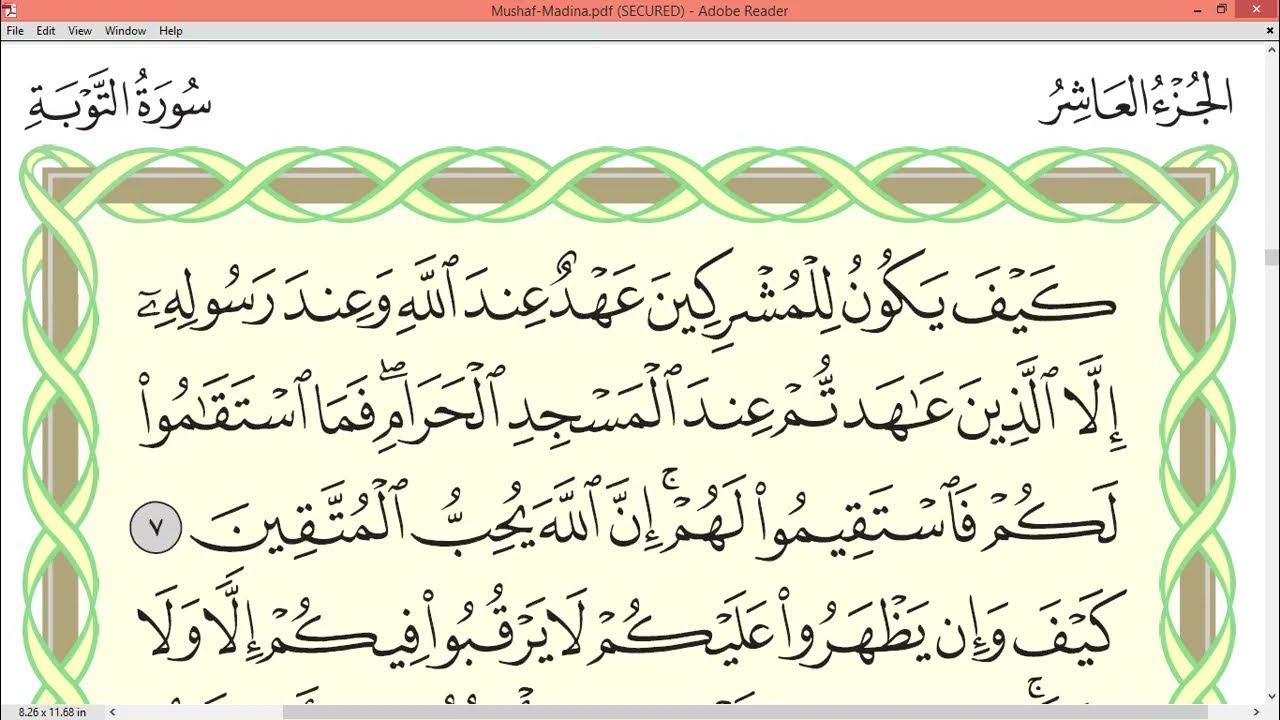 Mushaf-Madina.pdf (SECURED) - Adobe Reader
File Edit View Window Help
الجُزْءُ العَاشِرُ
سُورَةُ التَّوْبَةِ
كَيْفَ يَكُونُ لِلْمُشْرِكِينَ عَهْدٌ عِندَ ٱللَّهِ وَعِندَ رَسُولِهِۦٓ
إِلَّا ٱلَّذِينَ عَٰهَدتُّمْ عِندَ ٱلْمَسْجِدِ ٱلْحَرَامِۖ فَمَا ٱسْتَقَٰمُوا۟
لَكُمْ فَٱسْتَقِيمُوا۟ لَهُمْۚ إِنَّ ٱللَّهَ يُحِبُّ ٱلْمُتَّقِينَ ٧
كَيْفَ وَإِن يَظْهَرُوا۟ عَلَيْكُمْ لَا يَرْقُبُوا۟ فِيكُمْ إِلًّا وَلَا
8.26 x 11.68 in